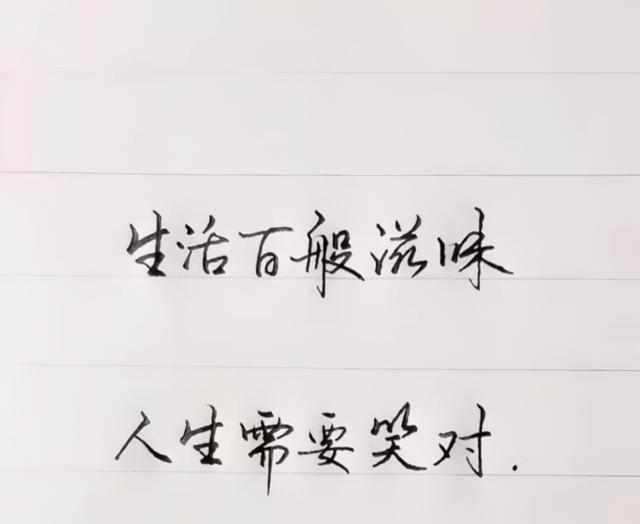 生活百般滋味
人生需要笑对.